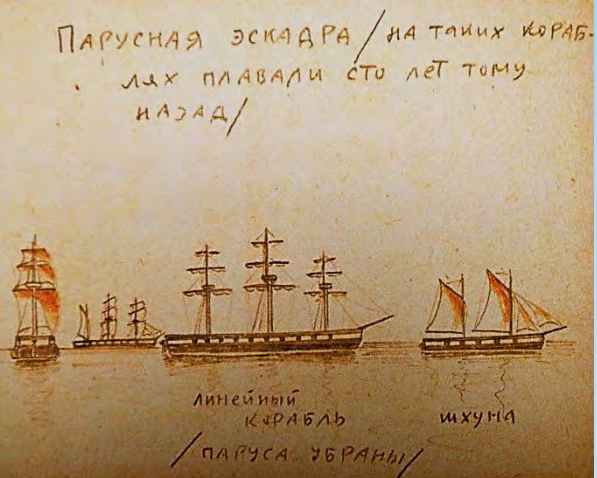 ПАРУСНАЯ ЭСКАДРА /НА ТАКИХ КОРАБ-
ЛЯХ ПЛАВАЛИ СТО ЛЕТ ТОМУ
НАЗАД/
ЛИНЕЙНЫЙ
КОРАБЛЬ
/ПАРУСА УБРАНЫ/
ШХУНА